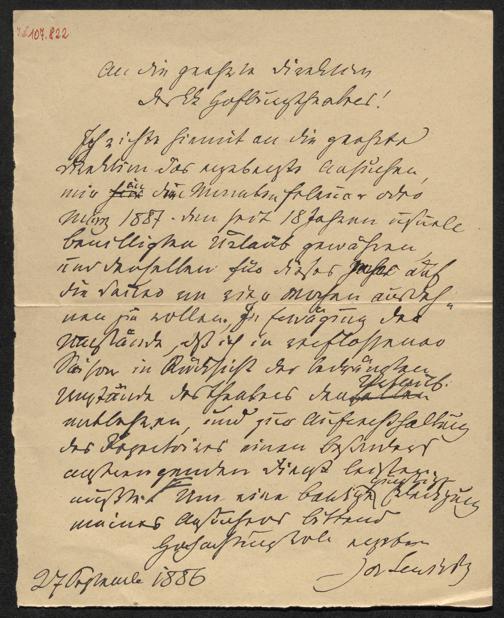 107.822
An die geehrte Direktion
des kk Hofburgtheaters!
Ich richte hiemit an die geehrte
Direktion das ergebenste Ansuchen,
mir im Monate Februar oder
März 1887 den seit 18 Jahren
bewilligten Urlaub gewähren,
und denselben für dieses Jahr auf
die Dauer von vier Wochen ausdeh-
nen zu wollen. In Erwägung des
Umstandes, daß ich in verflossener
Saison in Rücksicht der bedrängten
Umstände des Theaters den Urlaub
entbehren, und zur Aufrechthaltung
des Repertoires einen besonders
anstrengenden Dienst leisten
mußte. Um eine baldige günstige Erledigung
meines Ansuchens bittend
Hochachtungsvoll ergeben
Jos Lewinsky
27 September 1886